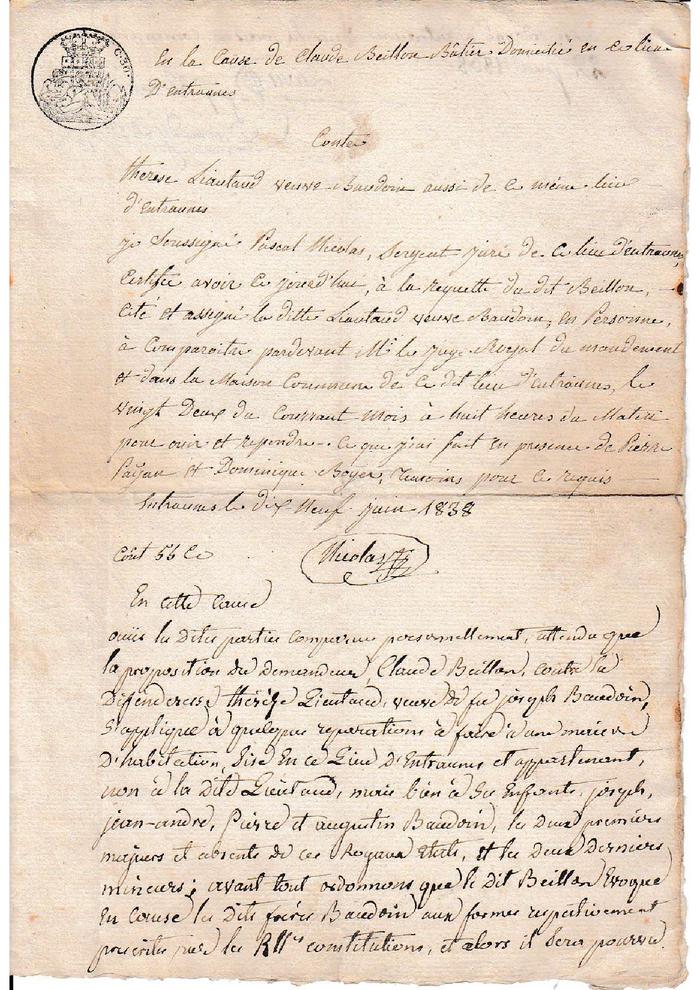 C. 30.
En la Cause de Claude Beillon Bâtier Domicilié en ce lieu
D'entraunes
Contre
thérèse Lieutaud veuve Baudoin aussi de ce même lieu
d'Entraunes
je soussigné Pascal Nicolas, sergent juré de ce lieu d'entraunes,
Certifie avoir ce jourd'hui, à la requette du dit Beillon,
Cité et assigné la ditte Lieutaud veuve Baudoin, en Personne,
à Comparoitre pardevant Mr. le juge Royal du mandement
et dans la Maison Commune de ce dit lieu d'entraunes, le
vingt Deux du Courrant mois à huit heures du Matin
pour ouir et repondre. Ce que j'ai fait en presence de Pierre
Payan et Dominique Boyer, temoins pour ce requis
Entraunes le dix Neuf juin 1838
Cout 56 Ce
Nicolas
En cette Cause
ouïs les dites parties comparues personnellement, attendu que
la proposition du demandeur, Claude Beillon, contre la
Défenderesse thérèze Lieutaud, veuve de feu joseph Baudoin,
s'applique à quelques reparations à faire à une maison
D'habitation, sise En ce Lieu D'Entraunes et appartenant,
non à la dite Lieutaud, mais bien à ses Enfants, joseph,
jean-andré, Pierre et augustin Baudoin, les deux premiers
majeurs et absents de ces Royaux Etats, et les deux Derniers
mineurs; avant tout ordonnons que le dit Beillon Evoque
En Cause les dits frères Baudoin aux formes respectivement
prescrites par les RLles constitutions, et alors il sera pourvu.